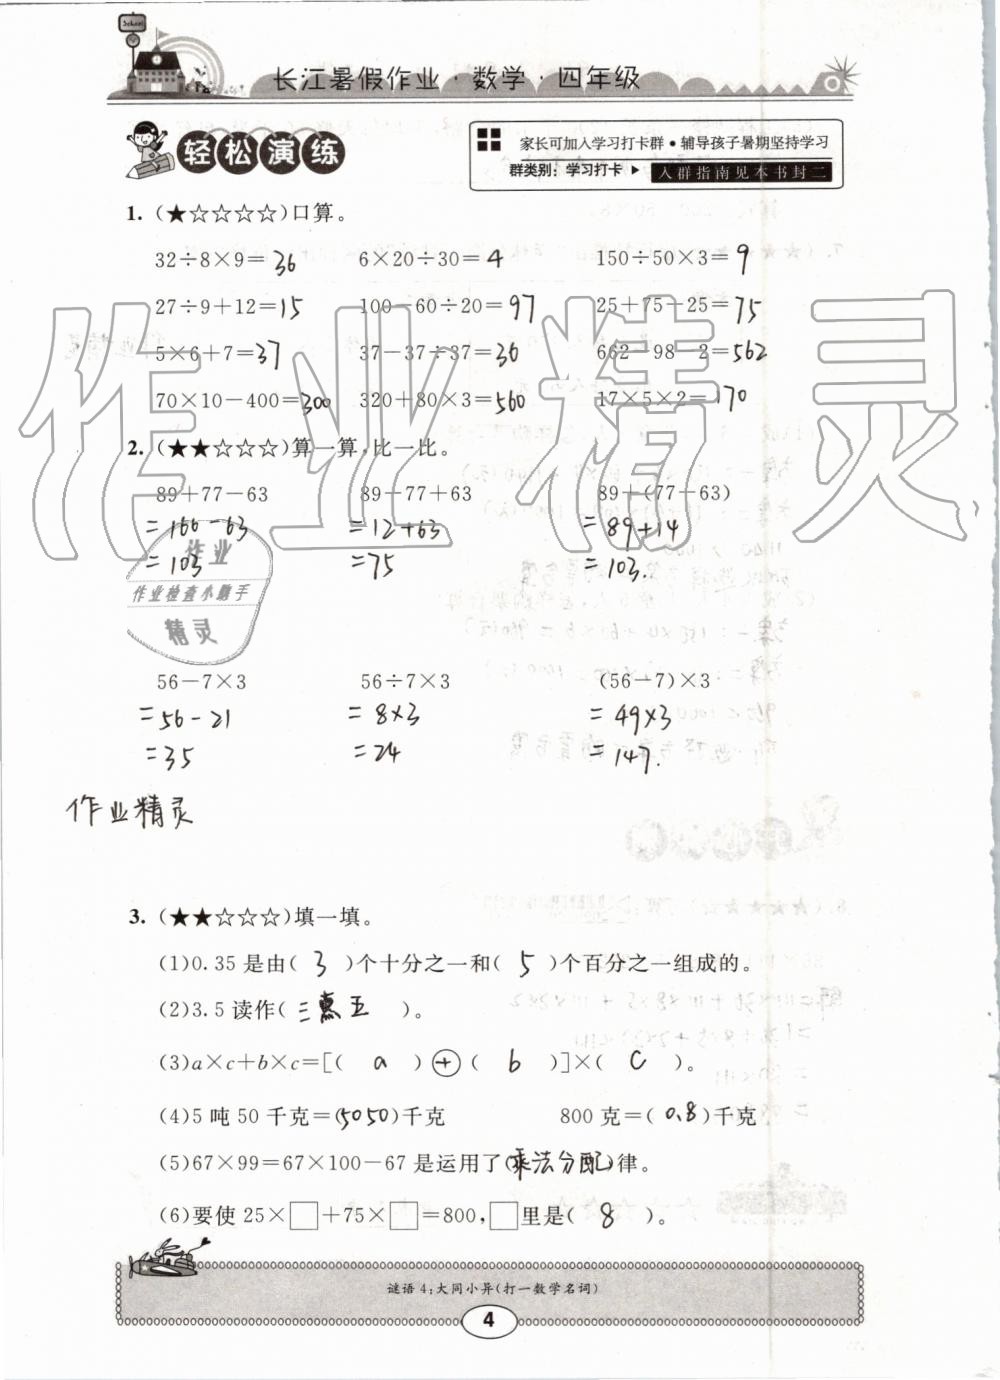 School
长江暑假作业·数学·四年级
轻松演练
家长可加入学习打卡群·辅导孩子暑期坚持学习
群类别：学习打卡
入群指南见本书封二
1.（★☆☆☆☆）口算。
32÷8×9=36 6×20÷30=4 150÷50×3=9
27÷9+12=15 100-60÷20=97 25+75-25=75
5×6+7=37 37-37÷37=36 662-98-2=562
70×10-400=300 320+80×3=560 17×5×2=170
2.（★★☆☆☆）算一算，比一比。
89+77-63 89-77+63 89+(77-63)
=166-63 =12+63 =89+14
=103 =75 =103.
作业
作业检查小助手
精灵
56-7×3 56÷7×3 (56-7)×3
=56-21 =8×3 =49×3
=35 =24 =147.
作业精灵
作业精灵
3.（★★☆☆☆）填一填。
(1)0.35是由( 3 )个十分之一和( 5 )个百分之一组成的。
(2)3.5读作( 三点五 )。
(3)a×c+b×c=[( a )⊕( b )]×( c )。
(4)5吨50千克=(5050)千克 800克=(0.8)千克
(5)67×99=67×100-67是运用了(乘法分配)律。
(6)要使25×□+75×□=800,□里是( 8 )。
谜语4:大同小异(打一数学名词)
4